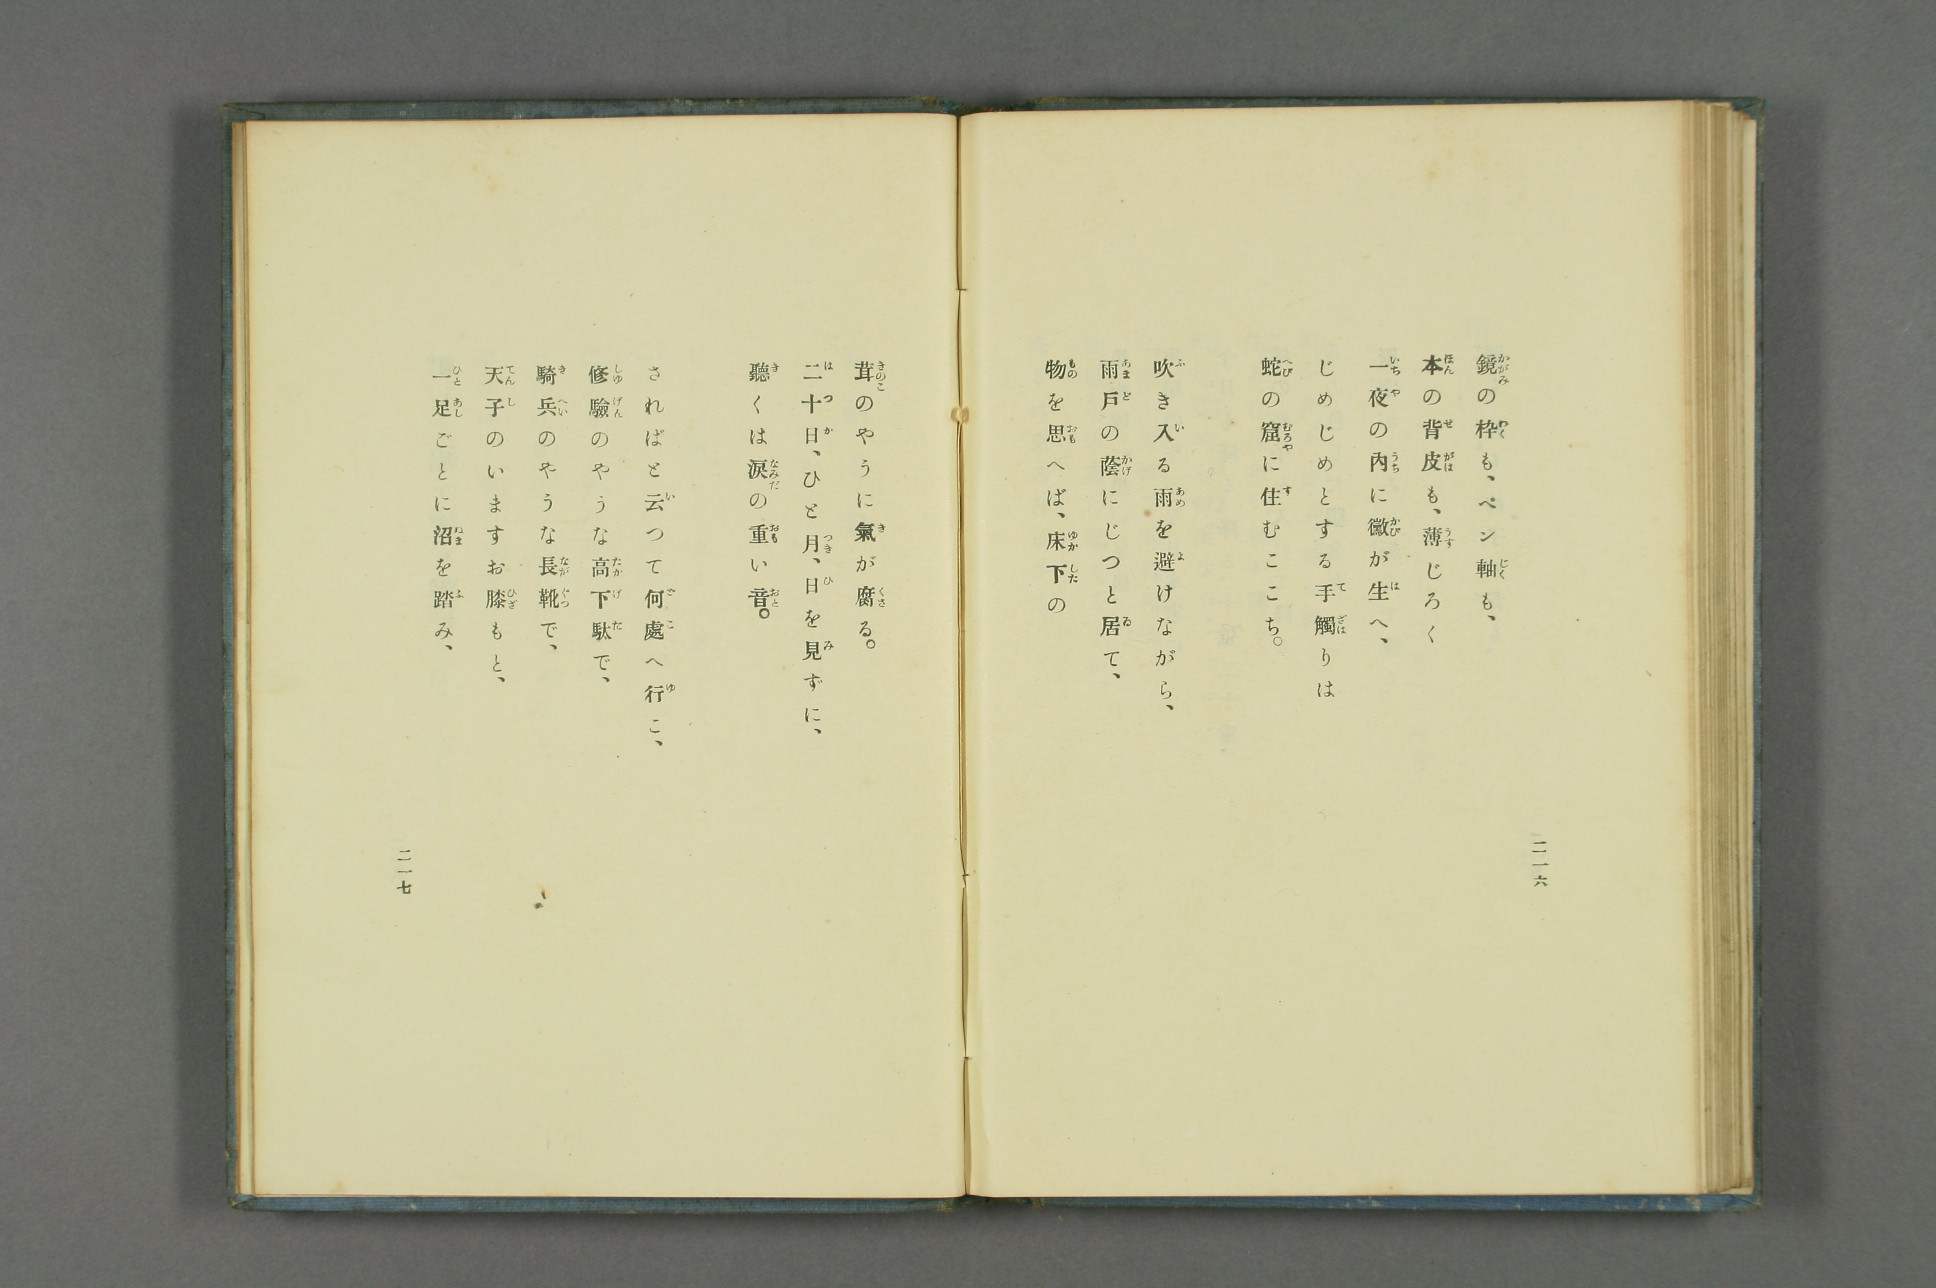 鏡の枠も、ペン軸も、
本の背皮も、薄じろく
一夜の内に黴が生へ、
じめじめとする手觸りは
蛇の窟に住むここち。
吹き入る雨を避けながら、
雨戸の蔭にじつと居て、
物を思へば、床下の
二一六
茸のやうに氣が腐る。
二十日、ひと月、日を見ずに、
聽くは淚の重い音。
さればと云つて何處へ行こ、
修驗のやうな高下駄で、
騎兵のやうな長靴で、
天子のいますお膝もと、
一足ごとに沼を踏み、
二一七